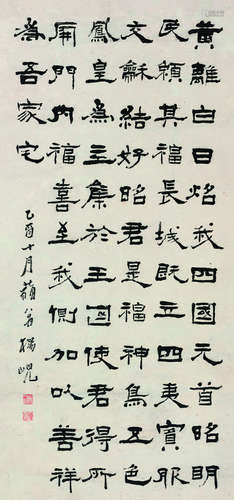 黃離白日炤我四國元首昭明
民賴其福長城既立四夷賓服
交龢結好昭君是福神鳥五色
鳳皇為主集於王國使君得所
開門內福喜至我側加以善祥
為吾家宅
乙酉十月藐翁楊峴